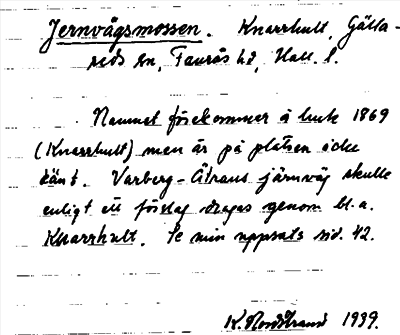 Jernvägsmossen. Knarrhult, Gälla-
reds sn, Faurås hd, Hall. l.
Namnet förekommer å lmk 1869
(Knarrhult) men är på platsen icke
känt. Varberg-Ätrans järnväg skulle
enligt ett förslag dragas genom bl.a.
Knarrhult. Se min uppsats sid. 42.
K. Nordstrand 1939.